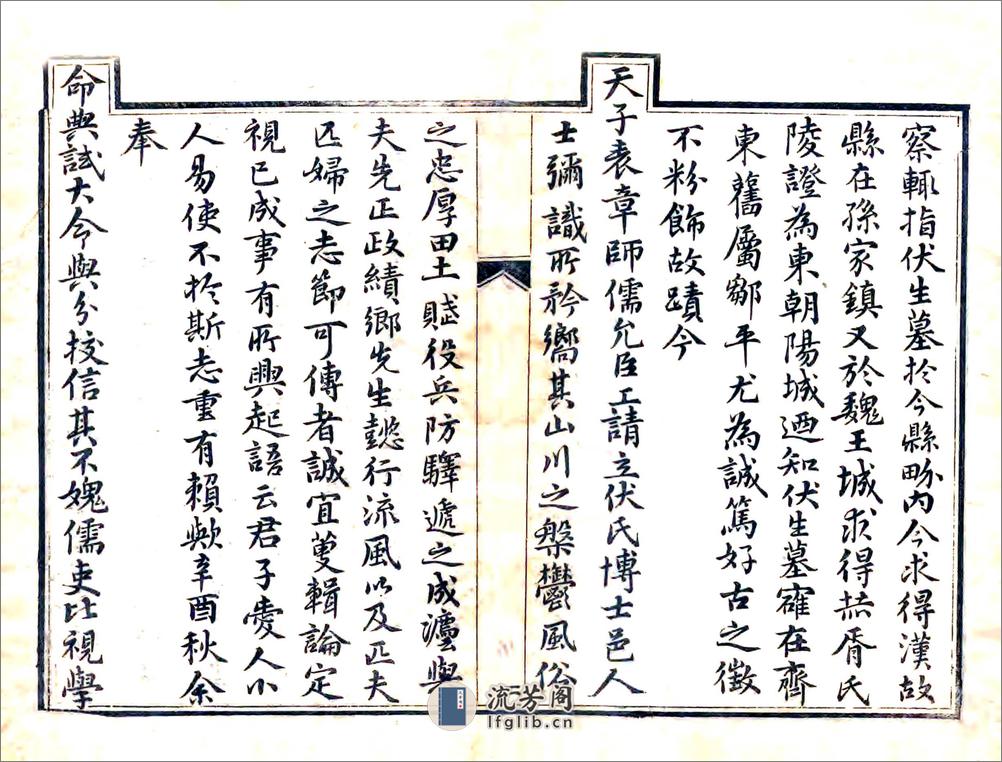 察輒指伏生墓扵今縣畍內今求得漢故
縣在孫家鎮又於魏王城求得茮胥氏
陵證為東朝陽城迺知伏生墓寉在齊
東舊屬鄒平尤為誠篤好古之徵
不粉飾故蹟今
天子表章師儒允臣工請立伏氏博士邑人
士彌識所矜嚮其山川之槃鬱風俗
之忠厚田土賦役兵防驛遞之成灋與
夫先正政績鄉先生懿行流風以及匹夫
匹婦之志節可傳者誠宜蒦輯論定
視已成事有所興起語云君子愛人小
人易使不扵斯志重有賴歟辛酉秋余
奉
命典試大令與分挍信其不媿儒吏比視學
流芳阁
lfglib.cn